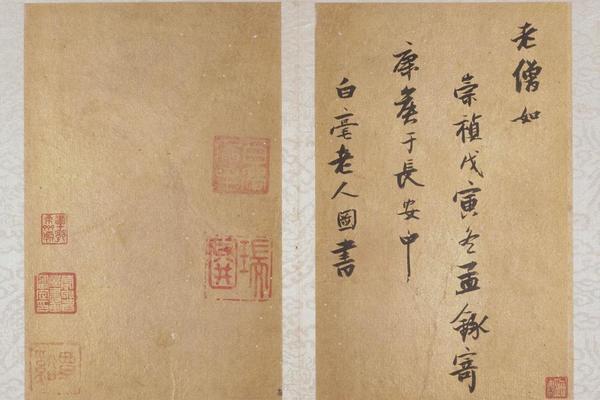 老僧如
崇禎戊寅冬孟錄寄
康矦于長安中
白毫老人圖書